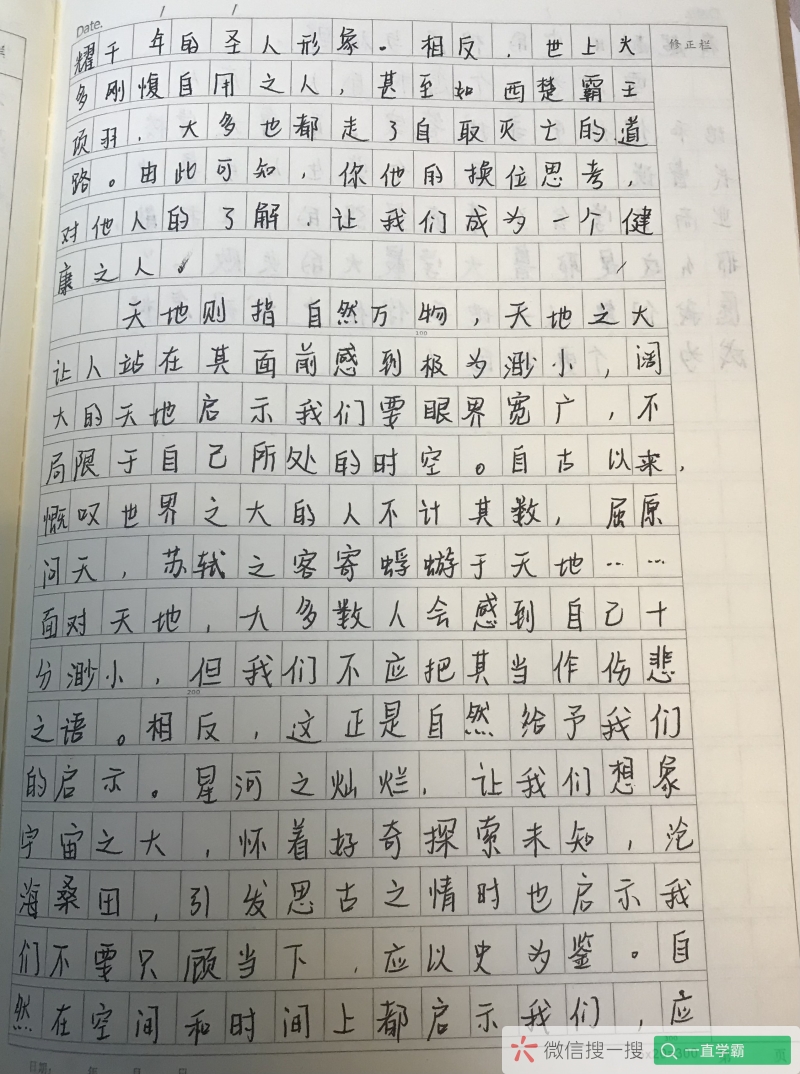 Date.
修正栏
耀千年的圣人形象。相反，世上大
多刚愎自用之人，甚至如西楚霸王
项羽，大多也都走了自取灭亡的道
路。由此可知，你他的换位思考，
对他人的了解，让我们成为一个健
康之人。
天地则指自然万物，天地之大
100
让人站在其面前感到极为渺小，阔
大的天地启示我们要眼界宽广，不
局限于自己所处的时空。自古以来，
慨叹世界之大的人不计其数，屈原
问天，苏轼之客寄蜉蝣于天地……
面对天地，大多数人会感到自己十
分渺小，但我们不应把其当作伤悲
200
之语。相反，这正是自然给予我们
的启示。星河之灿烂，让我们想象
宇宙之大，怀着好奇探索未知，沧
海桑田，引发思古之情时也启示我
们不要只顾当下，应以史为鉴。自
然在空间和时间上都启示我们，应
微信搜一搜 一直学霸
日期： 年 月 日 页